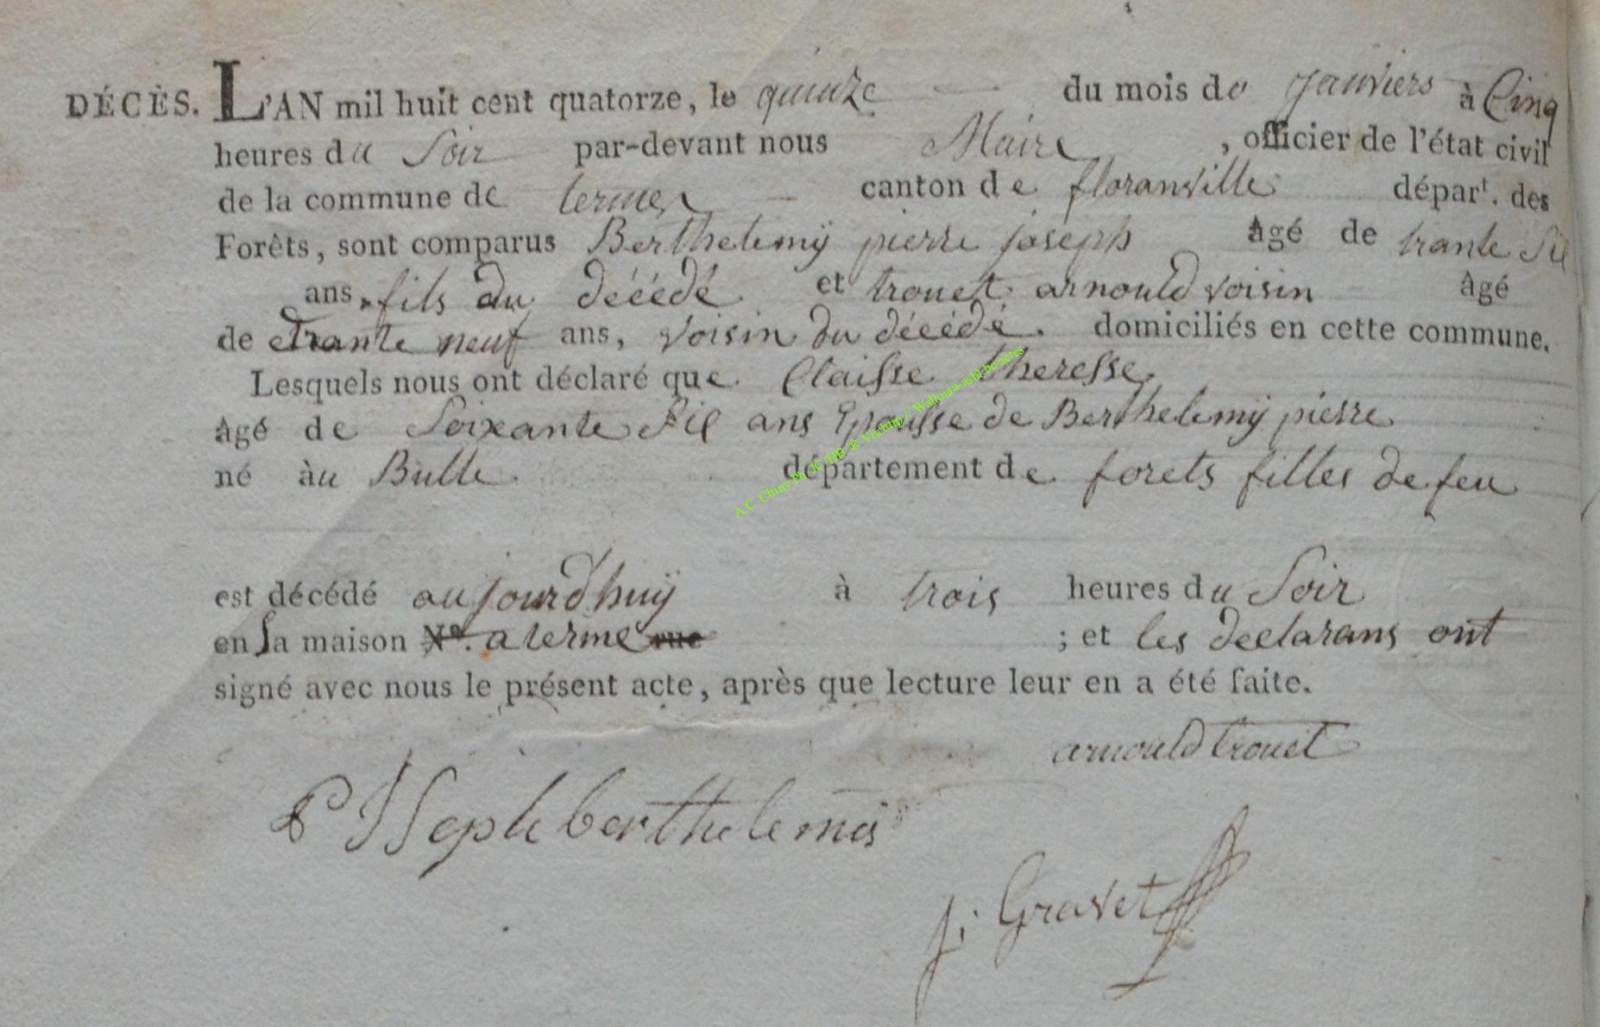 DÉCÈS. L'AN mil huit cent quatorze, le quinze du mois de janviers à Cinq
heures du Soir par-devant nous Maire , officier de l'état civil
de la commune de termes canton de floranville départ. des
Forêts, sont comparus Berthelemÿ pierre joseph âgé de trante Sil
ans, fils du décédé et trouet arnould voisin âgé
de trante neuf ans, voisin du décédé. domiciliés en cette commune.
Lesquels nous ont déclaré que Claisse theresse
âgé de Soixante Sil ans Epousse de Berthelemÿ pierre
né àu Bulle département de forets filles de feu
est décédé aujourdhuÿ à trois heures du Soir
en Sa maison N°. a terme rue ; et les declarans ont
signé avec nous le présent acte, après que lecture leur en a été faite.
arnould trouet
P JSeph berthelemis
j: Gravet